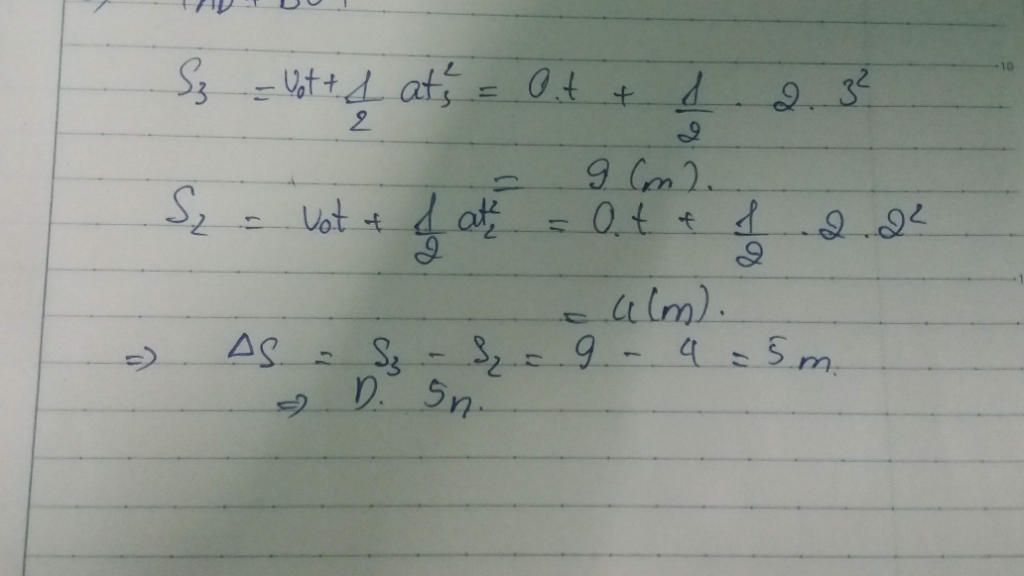 S₃ = v₀t + 1/2 at₃² = 0.t + 1/2 . 2 . 3²
= 9 (m).
S₂ = v₀t + 1/2 at₂² = 0.t + 1/2 . 2 . 2²
= 4 (m).
=> ΔS = S₃ - S₂ = 9 - 4 = 5 m.
=> D. 5n.